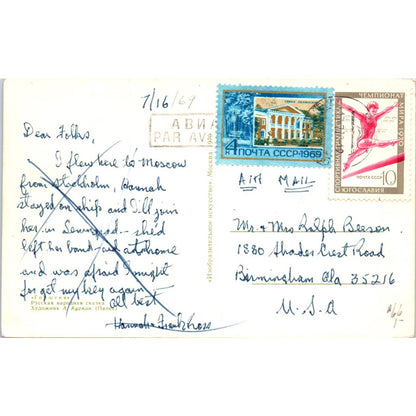 7/16/69
АВИА
PAR AV
4 ПОЧТА СССР·1969
ЧЕМПИОНАТ МИРА 1970
СПОРТИВНАЯ ГИМНАСТИКА
ПОЧТА СССР 10
ЮГОСЛАВИЯ
Dear Folks,
I flew here to Moscow
from Stockholm, Hannah
stayed on ship and I'll join
her in Leningrad – she'd
left her band aid at home
and was afraid I might
forget my key again
All best
Hannah &
«Горшеня»
Русская народная сказка
Художник А. Куркин
«Изобразительное искусство». Москва
Air Mail
Mr. & Mrs Ralph Beeson
1880 Shades Crest Road
Birmingham Ala 35216
U.S.A